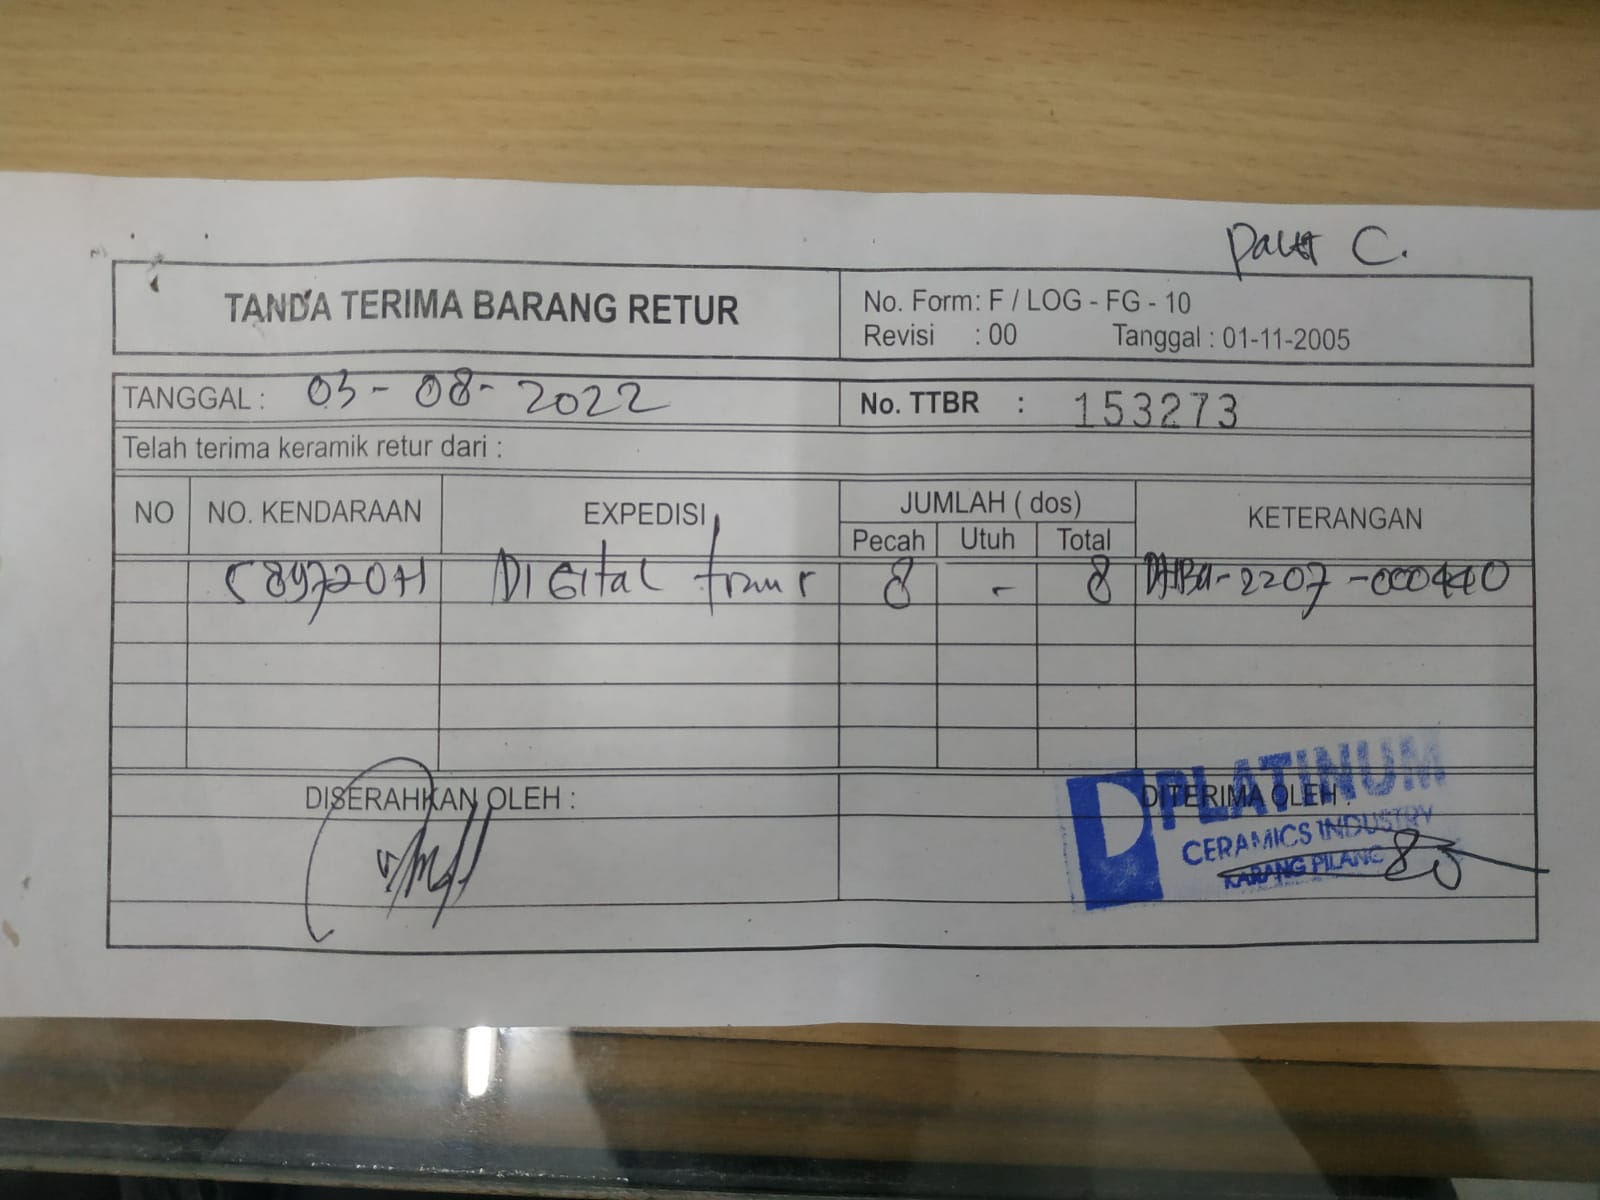 C.
TANDA TERIMA BARANG RETUR
No. Form: F / LOG - FG - 10
Revisi : 00 Tanggal : 01-11-2005
TANGGAL : 03 - 08 - 2022
No. TTBR : 153273
Telah terima keramik retur dari :
NO NO. KENDARAAN EXPEDISI JUMLAH ( dos) KETERANGAN
Pecah Utuh Total
DIGITAL 8 - 8 -2207-000440
DISERAHKAN OLEH :
DITERIMA OLEH :
PLATINUM
CERAMICS INDUSTRY
KARANG PILANG